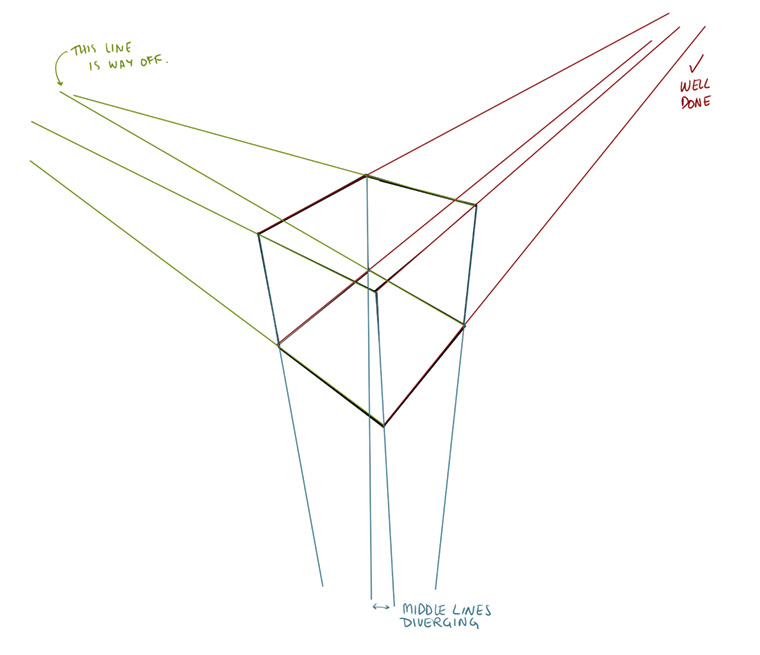 THIS LINE
IS WAY OFF.
WELL
DONE
MIDDLE LINES
DIVERGING